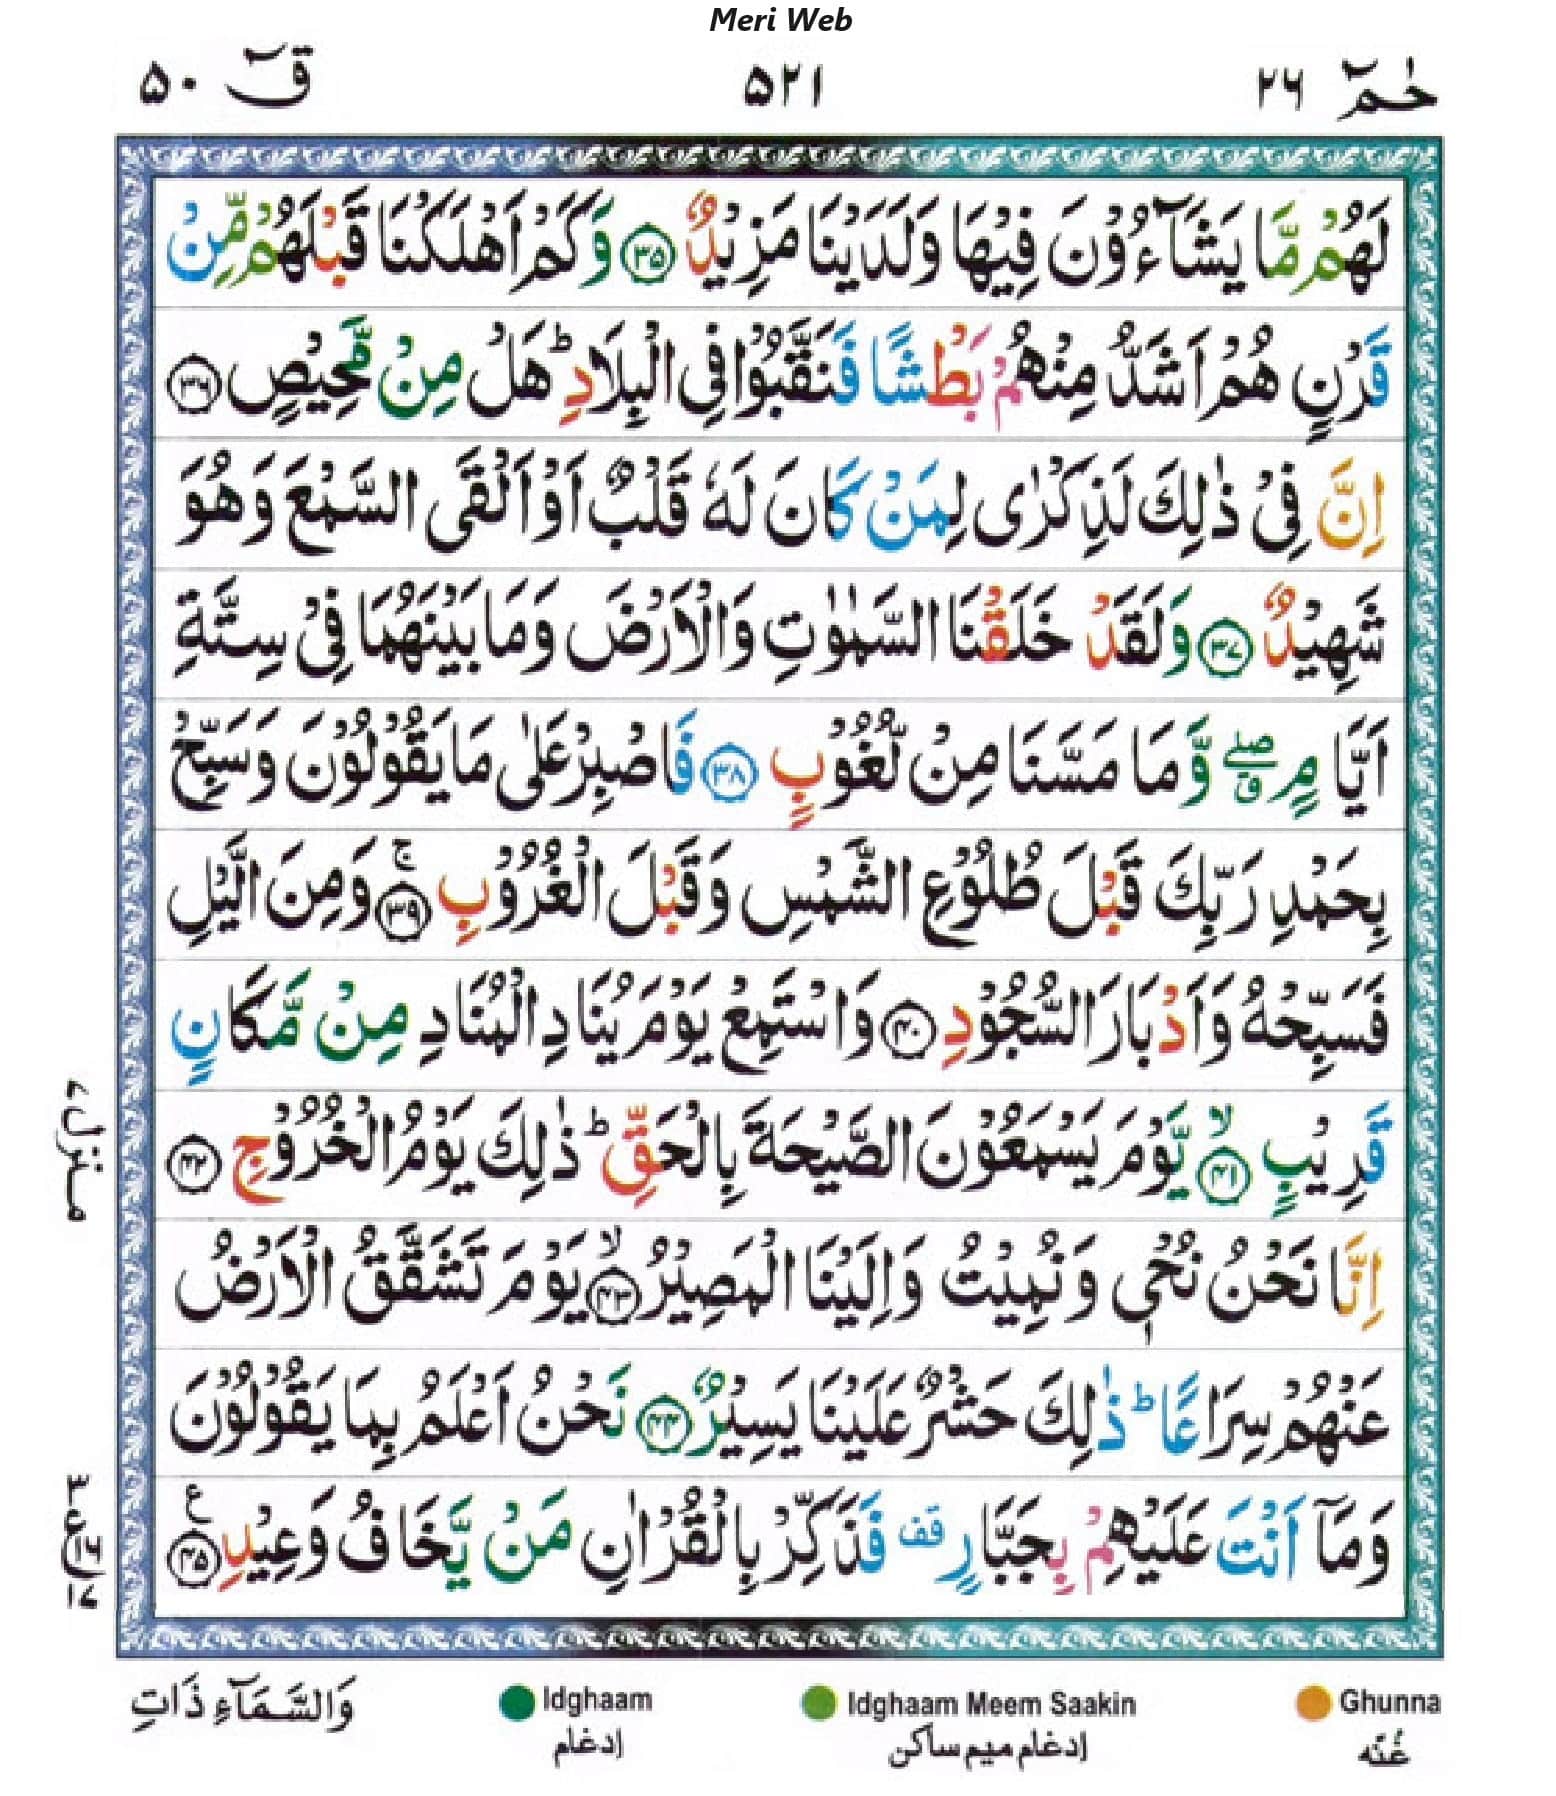 Meri Web
حٰمٓ ۲۶ ۵۲۱ قٓ ۵۰
لَهُمْ مَّا يَشَآءُوْنَ فِيْهَا وَلَدَيْنَا مَزِيْدٌ ۝۳۵ وَكَمْ اَهْلَكْنَا قَبْلَهُمْ مِّنْ
قَرْنٍ هُمْ اَشَدُّ مِنْهُمْ بَطْشًا فَنَقَّبُوْا فِي الْبِلَادِ ؕ هَلْ مِنْ مَّحِيْصٍ ۝۳۶
اِنَّ فِيْ ذٰلِكَ لَذِكْرٰى لِمَنْ كَانَ لَهٗ قَلْبٌ اَوْ اَلْقَى السَّمْعَ وَهُوَ
شَهِيْدٌ ۝۳۷ وَلَقَدْ خَلَقْنَا السَّمٰوٰتِ وَالْاَرْضَ وَمَا بَيْنَهُمَا فِيْ سِتَّةِ
اَيَّامٍ ۖ ق وَّمَا مَسَّنَا مِنْ لُّغُوْبٍ ۝۳۸ فَاصْبِرْ عَلٰى مَا يَقُوْلُوْنَ وَسَبِّحْ
بِحَمْدِ رَبِّكَ قَبْلَ طُلُوْعِ الشَّمْسِ وَقَبْلَ الْغُرُوْبِ ۝۳۹ ۚ وَمِنَ الَّيْلِ
فَسَبِّحْهُ وَاَدْبَارَ السُّجُوْدِ ۝۴۰ وَاسْتَمِعْ يَوْمَ يُنَادِ الْمُنَادِ مِنْ مَّكَانٍ
قَرِيْبٍ ۝۴۱ ۙ يَّوْمَ يَسْمَعُوْنَ الصَّيْحَةَ بِالْحَقِّ ؕ ذٰلِكَ يَوْمُ الْخُرُوْجِ ۝۴۲
اِنَّا نَحْنُ نُحْيٖ وَنُمِيْتُ وَاِلَيْنَا الْمَصِيْرُ ۝۴۳ ۙ يَوْمَ تَشَقَّقُ الْاَرْضُ
عَنْهُمْ سِرَاعًا ؕ ذٰلِكَ حَشْرٌ عَلَيْنَا يَسِيْرٌ ۝۴۴ نَحْنُ اَعْلَمُ بِمَا يَقُوْلُوْنَ
وَمَآ اَنْتَ عَلَيْهِمْ بِجَبَّارٍ قف فَذَكِّرْ بِالْقُرْاٰنِ مَنْ يَّخَافُ وَعِيْدِ ۝۴۵ ع
منزل ۷
وَالسَّمَآءِ ذَاتِ
Idghaam
Idghaam Meem Saakin
Ghunna
إدغام
إدغام ميم ساكن
غُنّه